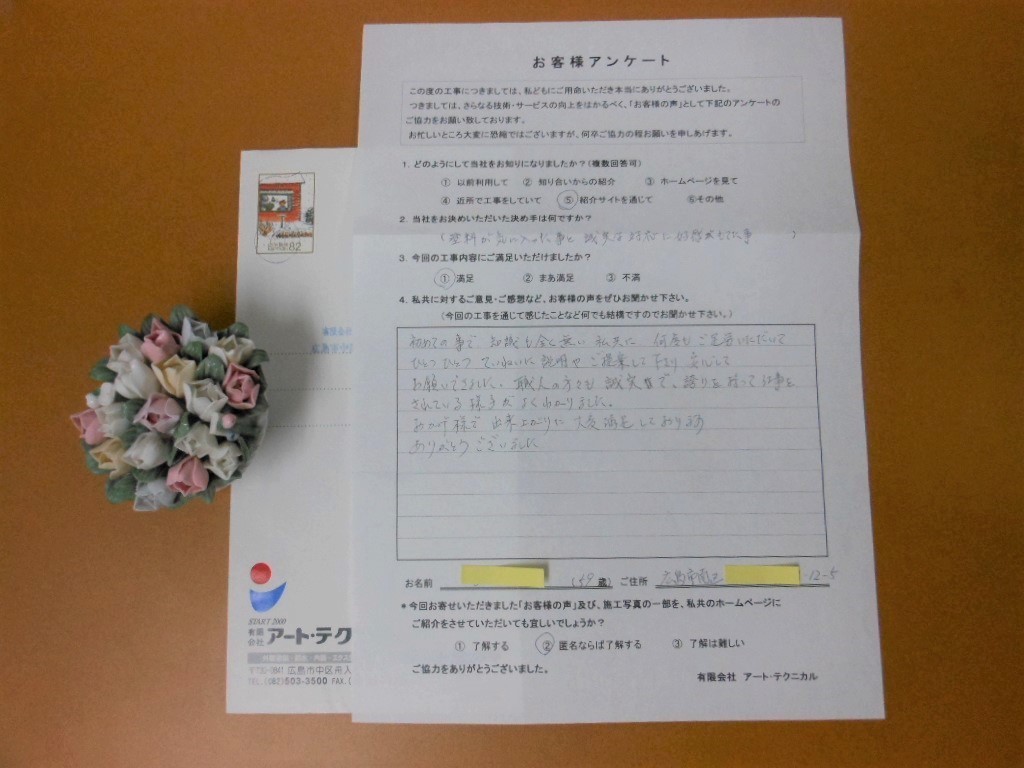 お客様アンケート
この度の工事につきましては、私どもにご用命いただき本当にありがとうございました。
つきましては、さらなる技術・サービスの向上をはかるべく、「お客様の声」として下記のアンケートの
ご協力をお願い致しております。
お忙しいところ大変に恐縮ではございますが、何卒ご協力の程お願いを申しあげます。
1. どのようにして当社をお知りになりましたか？（複数回答可）
① 以前利用して ② 知り合いからの紹介 ③ ホームページを見て
④ 近所で工事をしていて ⑤ 紹介サイトを通じて ⑥その他
2. 当社をお決めいただいた決め手は何ですか？
（塗料が気に入った事と 誠実な対応に好感がもてた事 ）
3. 今回の工事内容にご満足いただけましたか？
① 満足 ② まあ満足 ③ 不満
4. 私共に対するご意見・ご感想など、お客様の声をぜひお聞かせ下さい。
（今回の工事を通じて感じたことなど何でも結構ですのでお聞かせ下さい。）
初めての事で 知識も全く無い 私共に 何度も ご足労いただいて
ひとつ ひとつ ていねいに 説明や ご提案して 下さり 安心して
お願いできました。職人の方々も 誠実で、誇りを持って仕事を
されている様子が よくわかりました。
おかげ様で 出来上がりに 大変満足しております
ありがとうございました
お名前 (59 歳) ご住所 広島市南区 12-5
＊今回お寄せいただきました「お客様の声」及び、施工写真の一部を、私共のホームページに
ご紹介をさせていただいても宜しいでしょうか？
① 了解する ② 匿名ならば了解する ③ 了解は難しい
ご協力をありがとうございました。
有限会社 アート・テクニカル
82
START 2000
有限会社 アート・テク
広島市中区舟入
TEL.(082)503-3500 FAX.(